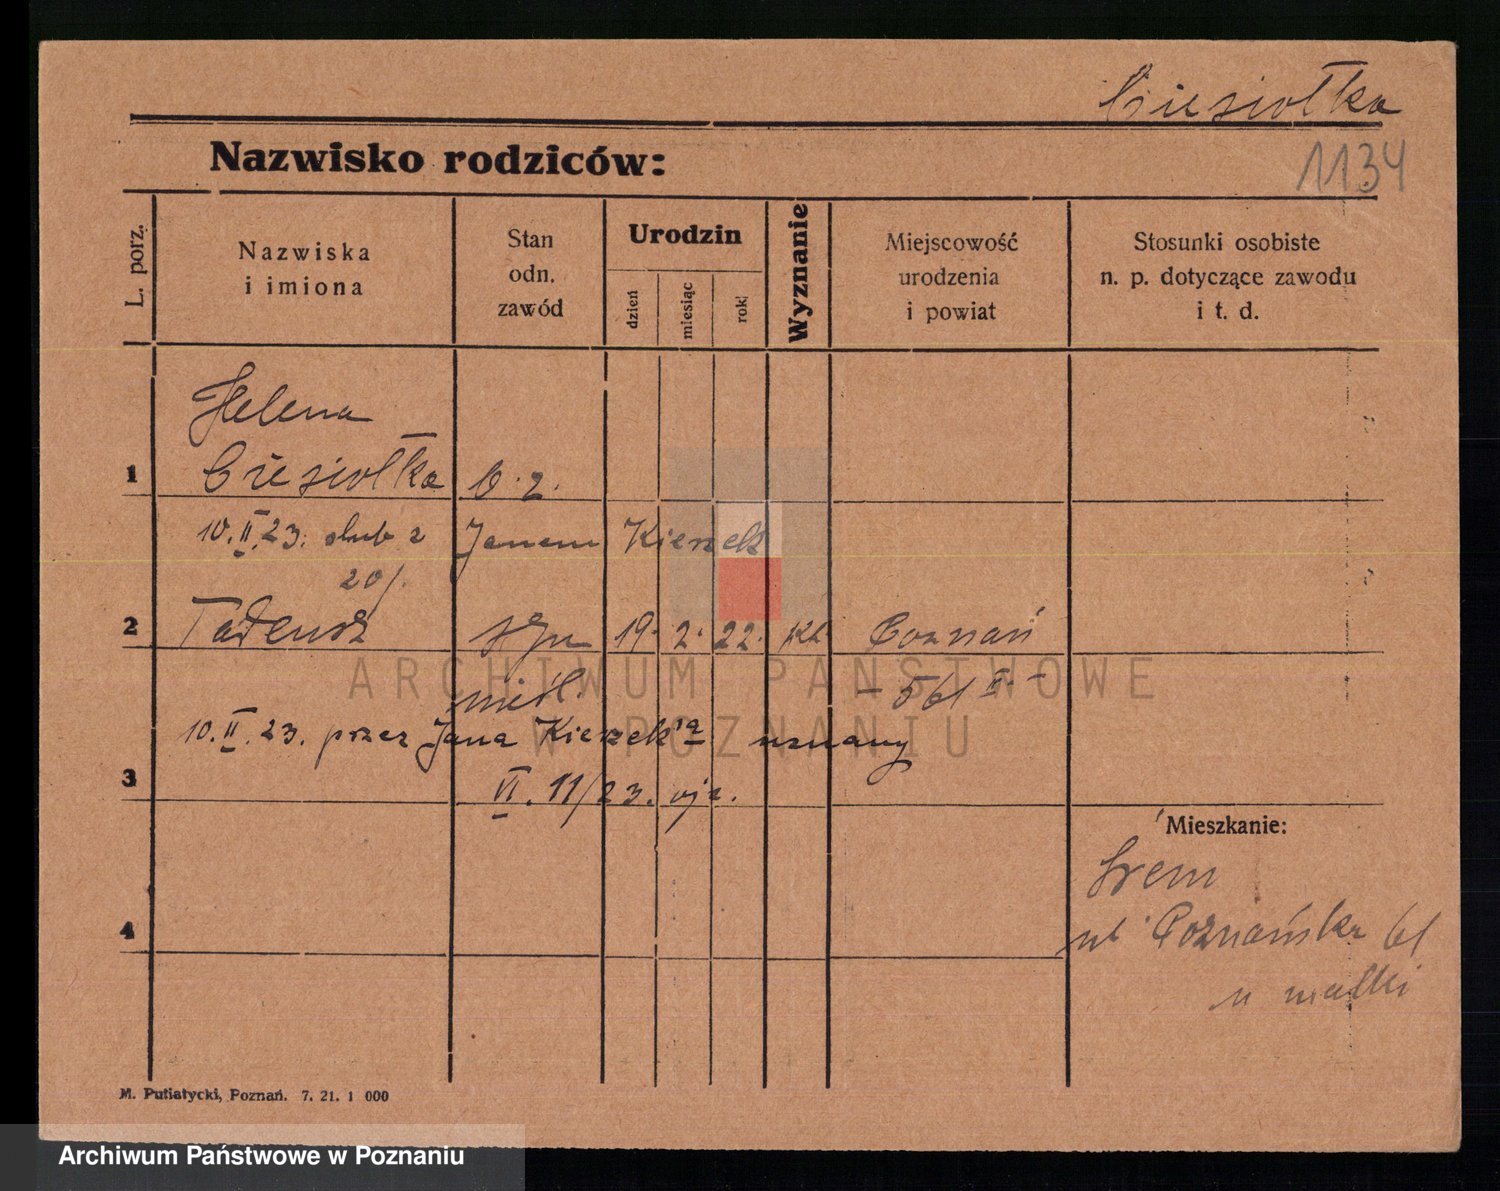 Ciesiołka
Nazwisko rodziców:
1134
L. porz.
Nazwiska
i imiona
Stan
odn.
zawód
Urodzin
dzień
miesiąc
rok
Wyznanie
Miejscowość
urodzenia
i powiat
Stosunki osobiste
n. p. dotyczące zawodu
i t. d.
Helena
1 Ciesiołka b. z.
10.II.23. ślub z Janem Kieszek
20/.
2 Tadeusz syn 19. 2. 22. kt. Poznań
nieśl. - 561 II -
10.II.23. przez Jana Kieszek'a uznany
3 VI. 11/23.
Mieszkanie:
4
Śrem
ul. Poznańska 61
u matki
M. Putiatycki, Poznań. 7. 21. 1 000
ARCHIWUM PAŃSTWOWE
W POZNANIU
Archiwum Państwowe w Poznaniu